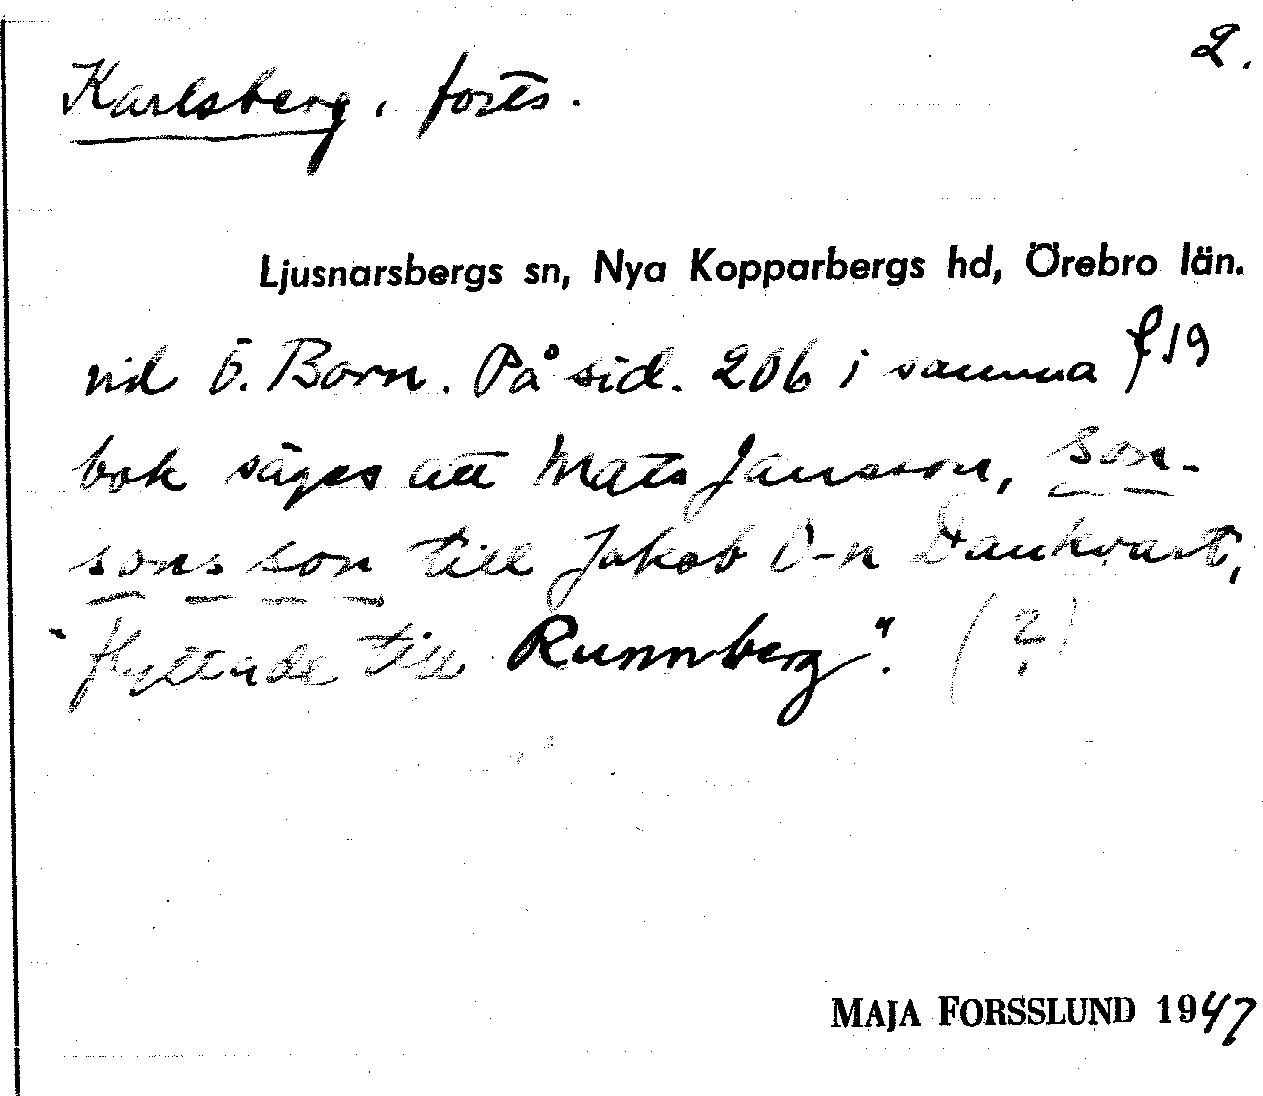 2.
Karlsberg, forts.
Ljusnarsbergs sn, Nya Kopparbergs hd, Örebro län.
vid Ö. Born. På sid. 206 i samma f19
bok säges att Mats Jansson, son-
sons son till Jakob O-n Dankvart,
"flyttade till Runnberg". (?)
MAJA FORSSLUND 1947